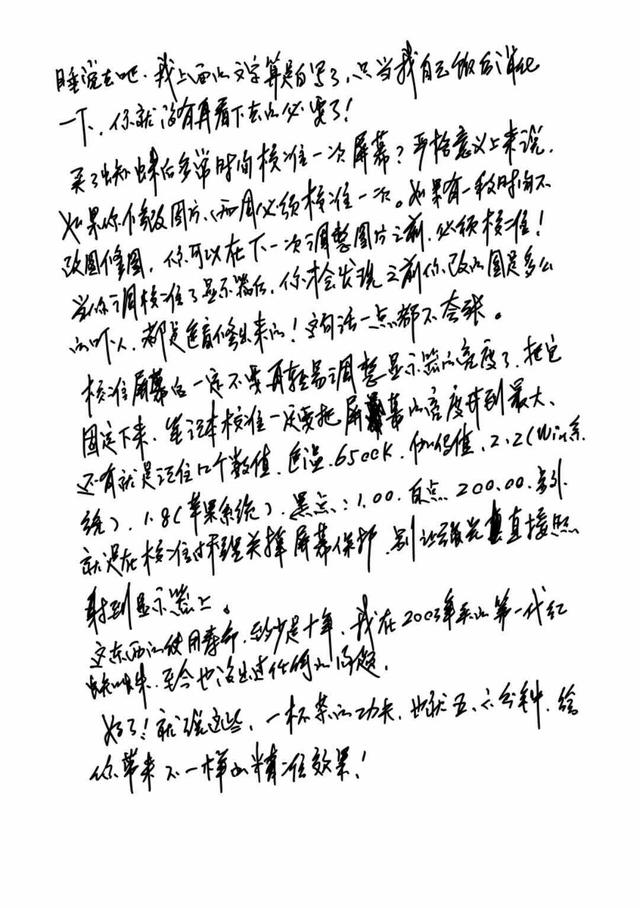 睡觉去吧。我上面的文字算是白写了，只当我自己饭后消化
一下，你就没有再看下去的必要了！
买了蜘蛛后多常时间校准一次屏幕？严格意义上来说，
如果你修改图片，两周必须校准一次。如果有一段时间不
改图修图，你可以在下一次调整图片之前，必须校准！
当你调校准了显示器后，你才会发现之前你改的图是多么
的吓人，都是盲修出来的！这句话一点都不夸张。
校准屏幕后一定不要再轻易调整显示器的亮度了，把它
固定下来，笔记本校准一定要把屏幕的亮度开到最大、
还有就是记住几个数值，色温：6500K，伽玛值，2.2（Win系
统），1.8（苹果系统），黑点：1.00，白点200.00，另外
就是在校准过程里关掉屏幕保护，别让强光直接照
射到显示器上。
这东西的使用寿命，至少是十年，我在2003年买的第一代红
蜘蛛，至今也没出过任何的问题。
好了！就说这些，一杯茶的功夫，也就五、六分钟，给
你带来不一样的精准效果！